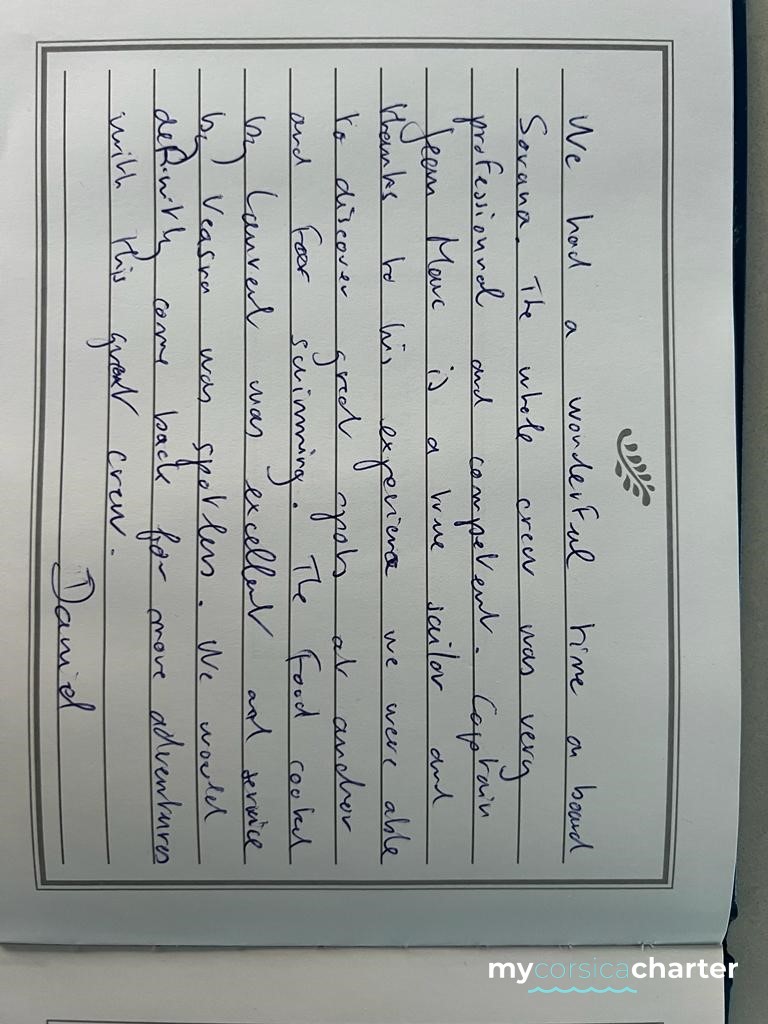 We had a wonderful time on board
Sovana. The whole crew was very
professionnal and competent. Captain
Jean Marc is a true sailor and
thanks to his experience we were able
to discover great spots at anchor
and for swimming. The food cooked
by Laurent was excellent and service
by Veasna was spotless. We would
definitly come back for more adventures
with this great crew.
Daniel
mycorsicacharter